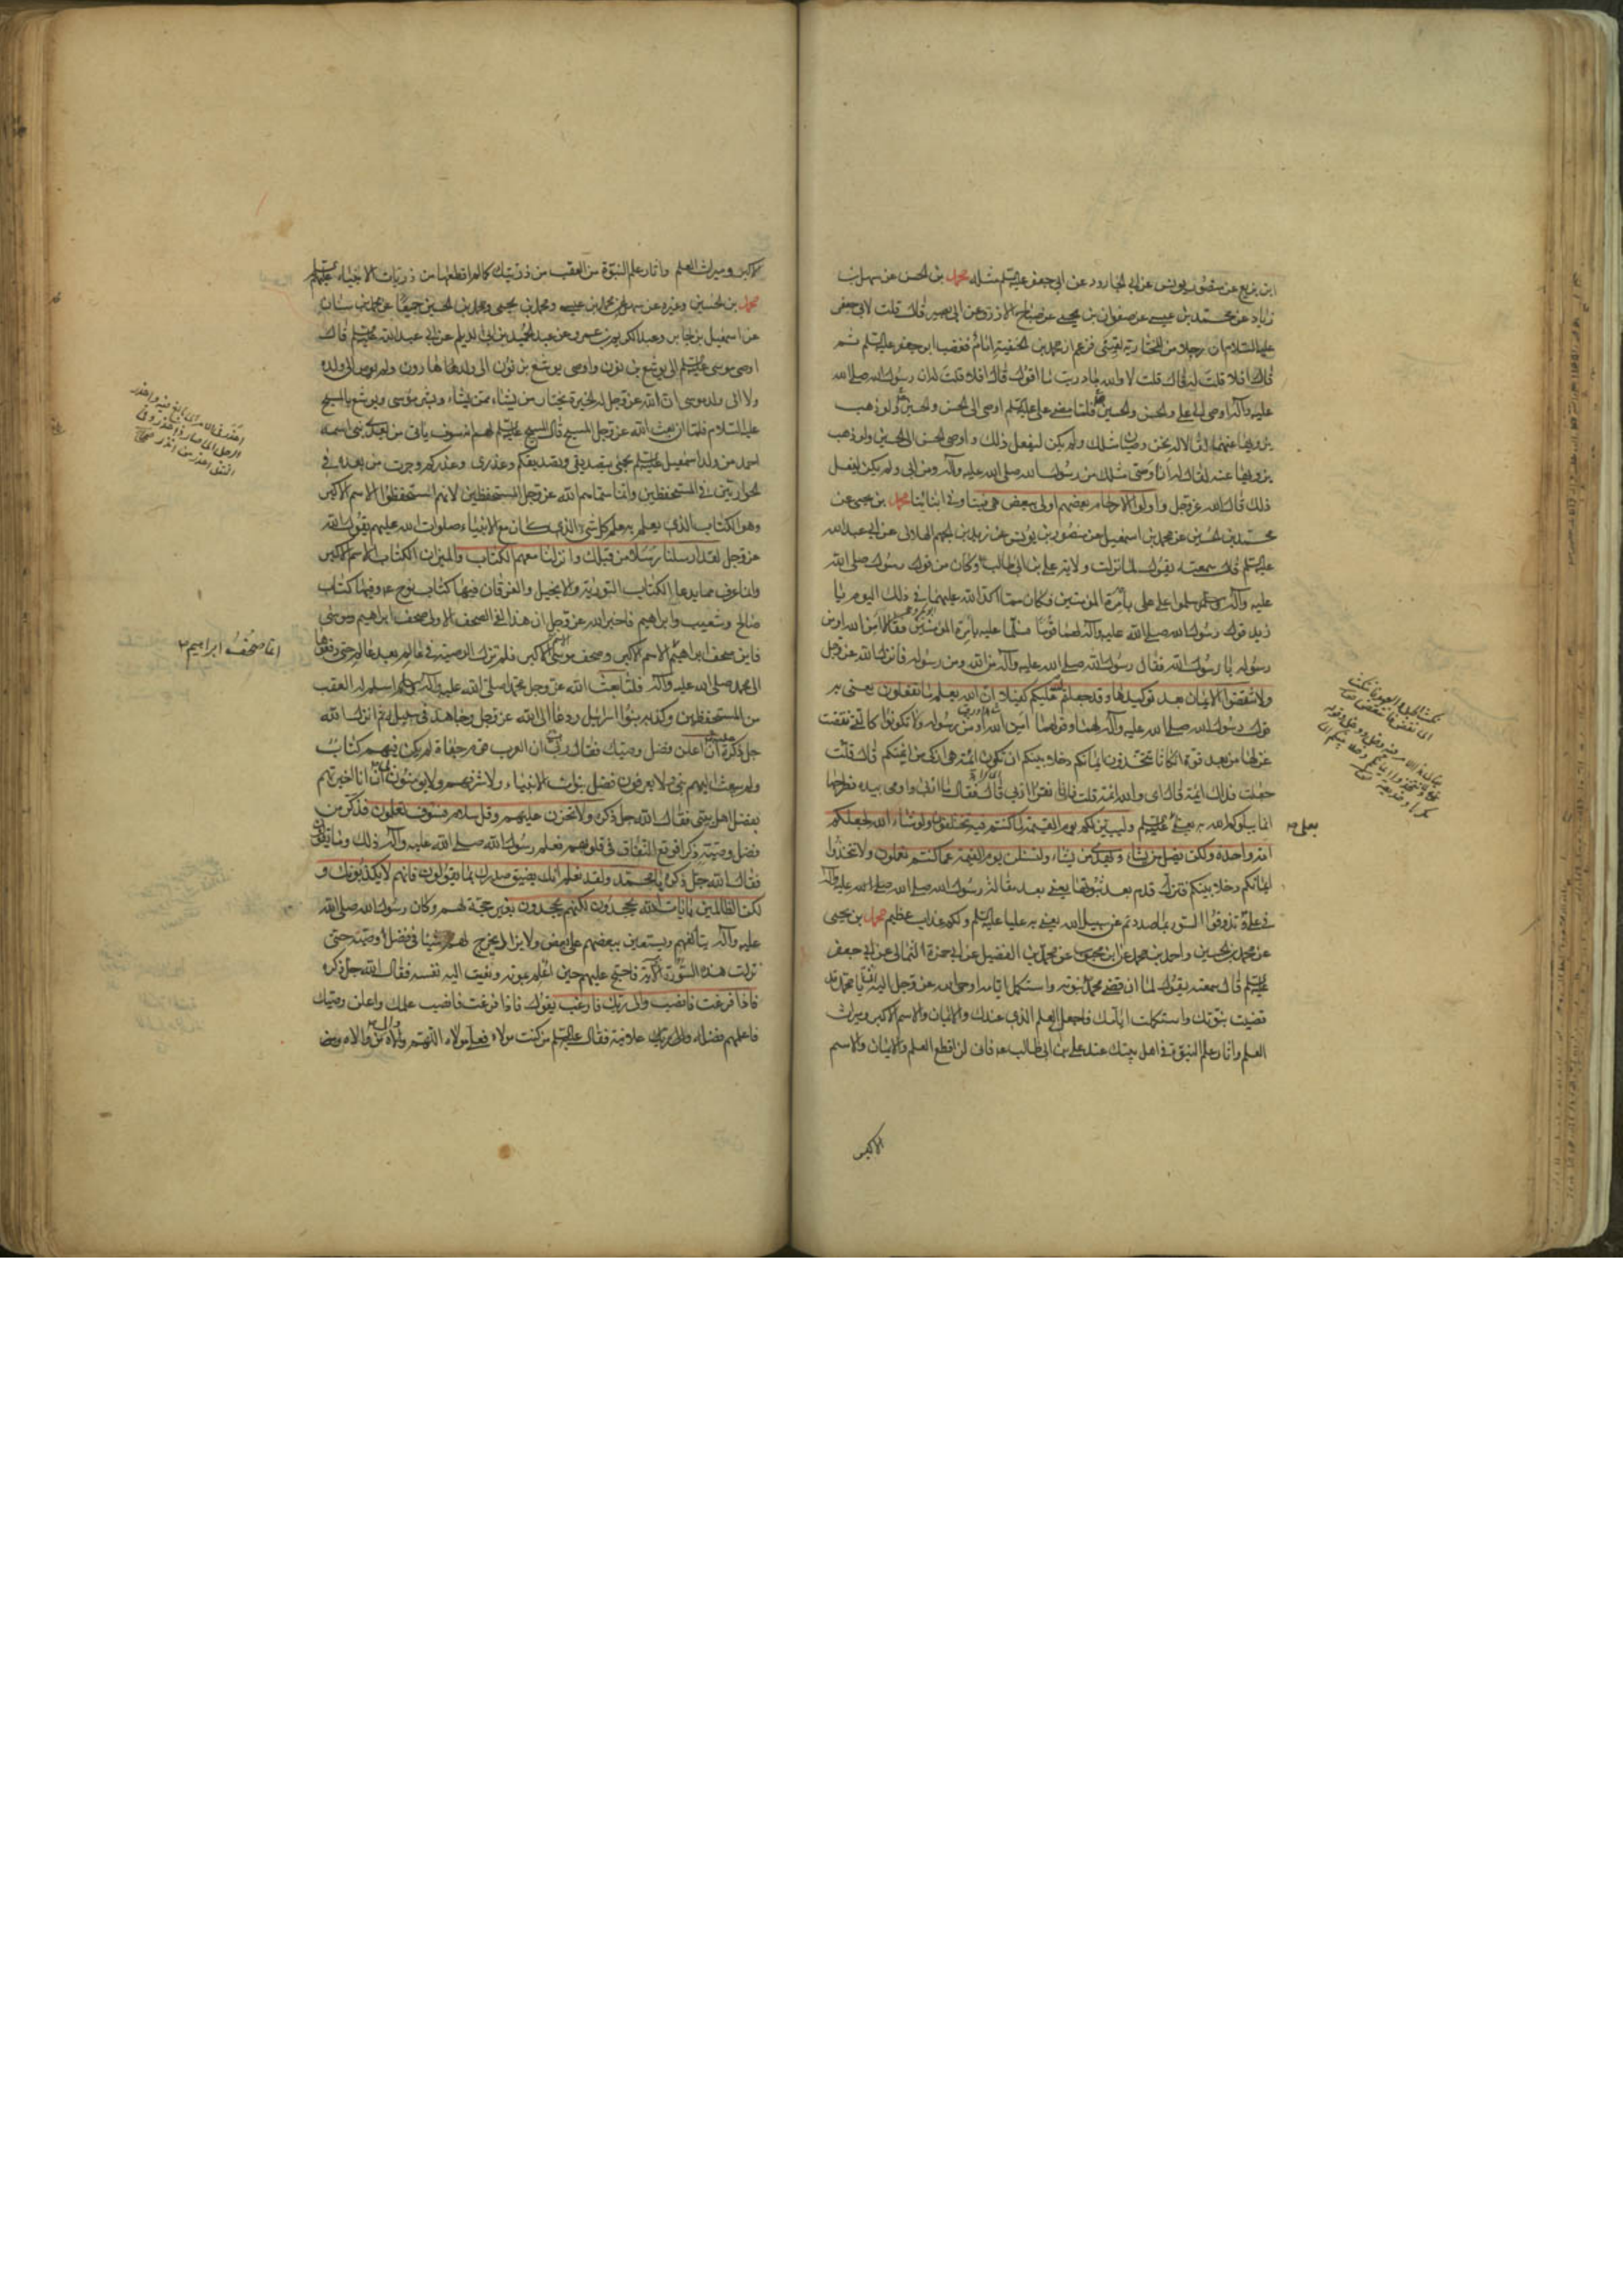 ابن بزيع عن منصور بن يونس عن ابي الجارود عن ابي جعفر عليه السلم مثله محمد بن الحسن عن سهل بن
زياد عن محمد بن عيسى عن صفوان بن يحيى عن صباح الازرق عن ابي بصير قال قلت لابي جعفر
عليه السلام ان رجلا من المختارية لقيني فزعم ان محمد بن الحنفية امام فغضب ابو جعفر عليه السلم ثم
قال افلا قلت له قال قلت لا والله ما دريت ما اقول قال افلا قلت له ان رسول الله صلى الله
عليه وآله اوصى الى على والحسن والحسين فلما مضى على عليه السلم اوصى الى الحسن والحسين ولو ذهب
يزويها عنهما لقالا له نحن وصيان مثلك ولم يكن ليفعل ذلك واوصى الحسن الى الحسين ولو ذهب
يزويها عنه لقال له انا وصى مثلك من رسول الله صلى الله عليه وآله ومن ابي ولم يكن ليفعل
ذلك قال الله عز وجل واولوا الارحام بعضهم اولى ببعض هي فينا وفي ابنائنا محمد بن يحيى عن
محمد بن الحسين عن محمد بن اسمعيل عن منصور بن يونس عن زيد بن الجهم الهلالي عن ابي عبد الله
عليه السلم قال سمعته يقول لما نزلت ولاية على بن ابي طالب وكان من قول رسول الله صلى الله
عليه وآله سلموا على على بامرة المؤمنين فكان مما اكد الله عليهما في ذلك اليوم يا
زيد قول رسول الله صلى الله عليه وآله لهما قوما فسلما عليه بامرة المؤمنين فقالا امن الله او من
رسوله يا رسول الله فقال رسول الله صلى الله عليه وآله من الله ومن رسوله فانزل الله عز وجل
ولا تنقضوا الايمان بعد توكيدها وقد جعلتم الله عليكم كفيلا ان الله يعلم ما تفعلون يعنى به
قول رسول الله صلى الله عليه وآله لهما وقولهما امن الله او من رسوله ولا تكونوا كالتي نقضت
غزلها من بعد قوة انكاثا تتخذون ايمانكم دخلا بينكم ان تكون ائمة هي ازكى من ائمتكم قال قلت
جعلت فداك ائمة قال اى والله ائمة قلت فانا نقرأ اربى قال فقال ما اربى واومى بيده فطرحها
انما يبلوكم الله به يعنى بعلى عليه السلم وليبينن لكم يوم القيمة ما كنتم فيه تختلفون ولو شاء الله لجعلكم
امة واحدة ولكن يضل من يشاء ويهدى من يشاء ولتسئلن يوم القيمة عما كنتم تعملون ولا تتخذوا
ايمانكم دخلا بينكم فتزل قدم بعد ثبوتها يعنى بعد مقالة رسول الله صلى الله عليه وآله
في على وتذوقوا السوء بما صددتم عن سبيل الله يعنى به عليا عليه السلم ولكم عذاب عظيم محمد بن يحيى
عن محمد بن الحسين واحمد بن محمد عن ابن محبوب عن محمد بن الفضيل عن ابي حمزة الثمالى عن ابي جعفر
عليه السلم قال سمعته يقول لما ان قضى محمد نبوته واستكمل ايامه اوحى الله عز وجل اليه ان يا محمد قد
قضيت نبوتك واستكملت ايامك فاجعل العلم الذى عندك والايمان والاسم الاكبر وميراث
العلم واثار علم النبوة في اهل بيتك عند على بن ابي طالب فانى لن اقطع العلم والايمان والاسم
بعلى صح
الاكبر
الاكبر وميراث العلم واثار علم النبوة من العقب من ذريتك كما لم اقطعها من ذريات الانبياء عليهم السلم
محمد بن الحسين وغيره عن سهل عن محمد بن عيسى ومحمد بن يحيى ومحمد بن الحسين جميعا عن محمد بن سنان
عن اسمعيل بن جابر وعبد الكريم بن عمرو عن عبد الحميد بن ابي الديلم عن ابي عبد الله عليه السلم قال
اوصى موسى عليه السلم الى يوشع بن نون واوصى يوشع بن نون الى ولد هارون ولم يوص الى ولده
ولا الى ولد موسى ان الله عز وجل له الخيرة يختار من يشاء ممن يشاء وبشر موسى ويوشع بالمسيح
عليه السلام فلما ان بعث الله عز وجل المسيح قال المسيح عليه السلم لهم انه سوف ياتي من بعدى نبي اسمه
احمد من ولد اسمعيل عليه السلم يجئ بتصديقى وتصديقكم وعذرى وعذركم وجرت من بعده في
الحواريين في المستحفظين وانما سماهم الله عز وجل المستحفظين لانهم استحفظوا الاسم الاكبر
وهو الكتاب الذى يعلم به علم كل شئ الذى كان مع الانبياء صلوات الله عليهم يقول الله
عز وجل لقد ارسلنا رسلا من قبلك وانزلنا معهم الكتاب والميزان الكتاب الاسم الاكبر
وانما عرف مما يدعا الكتاب التورية والانجيل والفرقان فيها كتاب نوح وفيها كتاب
صالح وشعيب وابراهيم فاخبر الله عز وجل ان هذا لفي الصحف الاولى صحف ابراهيم وموسى
فاين صحف ابراهيم الاسم الاكبر وصحف موسى الاسم الاكبر فلم تزل الوصية في عالم بعد عالم حتى دفعوها
الى محمد صلى الله عليه وآله فلما بعث الله عز وجل محمدا صلى الله عليه وآله اسلم له العقب
من المستحفظين وكذبه بنوا اسرائيل ودعا الى الله عز وجل وجاهد في سبيله ثم انزل الله
جل ذكره عليه ان اعلن فضل وصيك فقال رب ان العرب قوم جفاة لم يكن فيهم كتاب
ولم يبعث اليهم نبي ولا يعرفون فضل نبوات الانبياء ولا شرفهم ولا يؤمنون بي ان انا اخبرتهم
بفضل اهل بيتى فقال الله جل ذكره ولا تحزن عليهم وقل سلام فسوف تعلمون فذكر من
فضل وصيه ذكرا فوقع النفاق في قلوبهم فعلم رسول الله صلى الله عليه وآله ذلك وما يقولون
فقال الله جل ذكره يا محمد ولقد نعلم انك يضيق صدرك بما يقولون فانهم لا يكذبونك و
لكن الظالمين بآيات الله يجحدون لكنهم يجحدون بغير حجة لهم وكان رسول الله صلى الله
عليه وآله يتألفهم ويستعين ببعضهم على بعض ولا يزال يخرج لهم شيئا في فضل وصيه حتى
نزلت هذه السورة فاحتج عليهم حين اعلم بموته ونعيت اليه نفسه فقال الله جل ذكره
فاذا فرغت فانصب والى ربك فارغب يقول فاذا فرغت فانصب علمك واعلن وصيك
فاعلمهم فضله علانية فقال عليه السلم من كنت مولاه فعلى مولاه اللهم وال من والاه وعاد
اما صحف ابراهيم